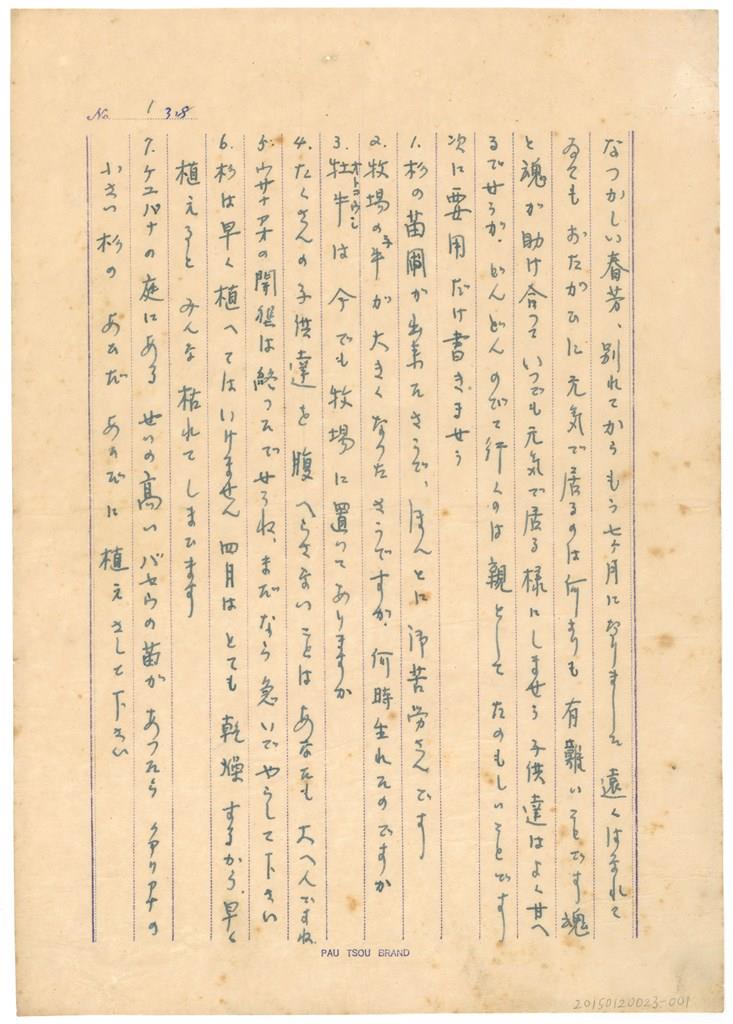 No. 1 318
なつかしい春芳、別れてからもう七ヶ月になりました 遠くはなれて
ゐてもおたがひに元気で居るのは何よりも有難いことです 魂
と魂が助け合っていつでも元気で居る様にしませう 子供達はよく甘へ
るでせうが、どんどんのびて行くのは親としてたのもしいことです
次に要用だけ書きませう
1. 杉の苗圃が出来たさうで、ほんとに沛苦労さんです
2. 牧場の子牛が大きくなったさうですが、何時生れたのですか
3. 牡牛は今でも牧場に置いてありますか
オトコウシ
4. たくさんの子供達を腹へらさないことはあなたも大へんですね
5. の開墾は終ったでせうね、まだなら急いでやらして下さい
6. 杉は早く植へてはいけません 四月はとても乾燥するから、早く
植えるとみんな枯れてしまひます
7. ケユパナの庭にあるせいの高いバセウの苗があったら クアリアナの
小さい杉のあひだあひだに植えさして下さい
PAU TSOU BRAND
20150120023-001